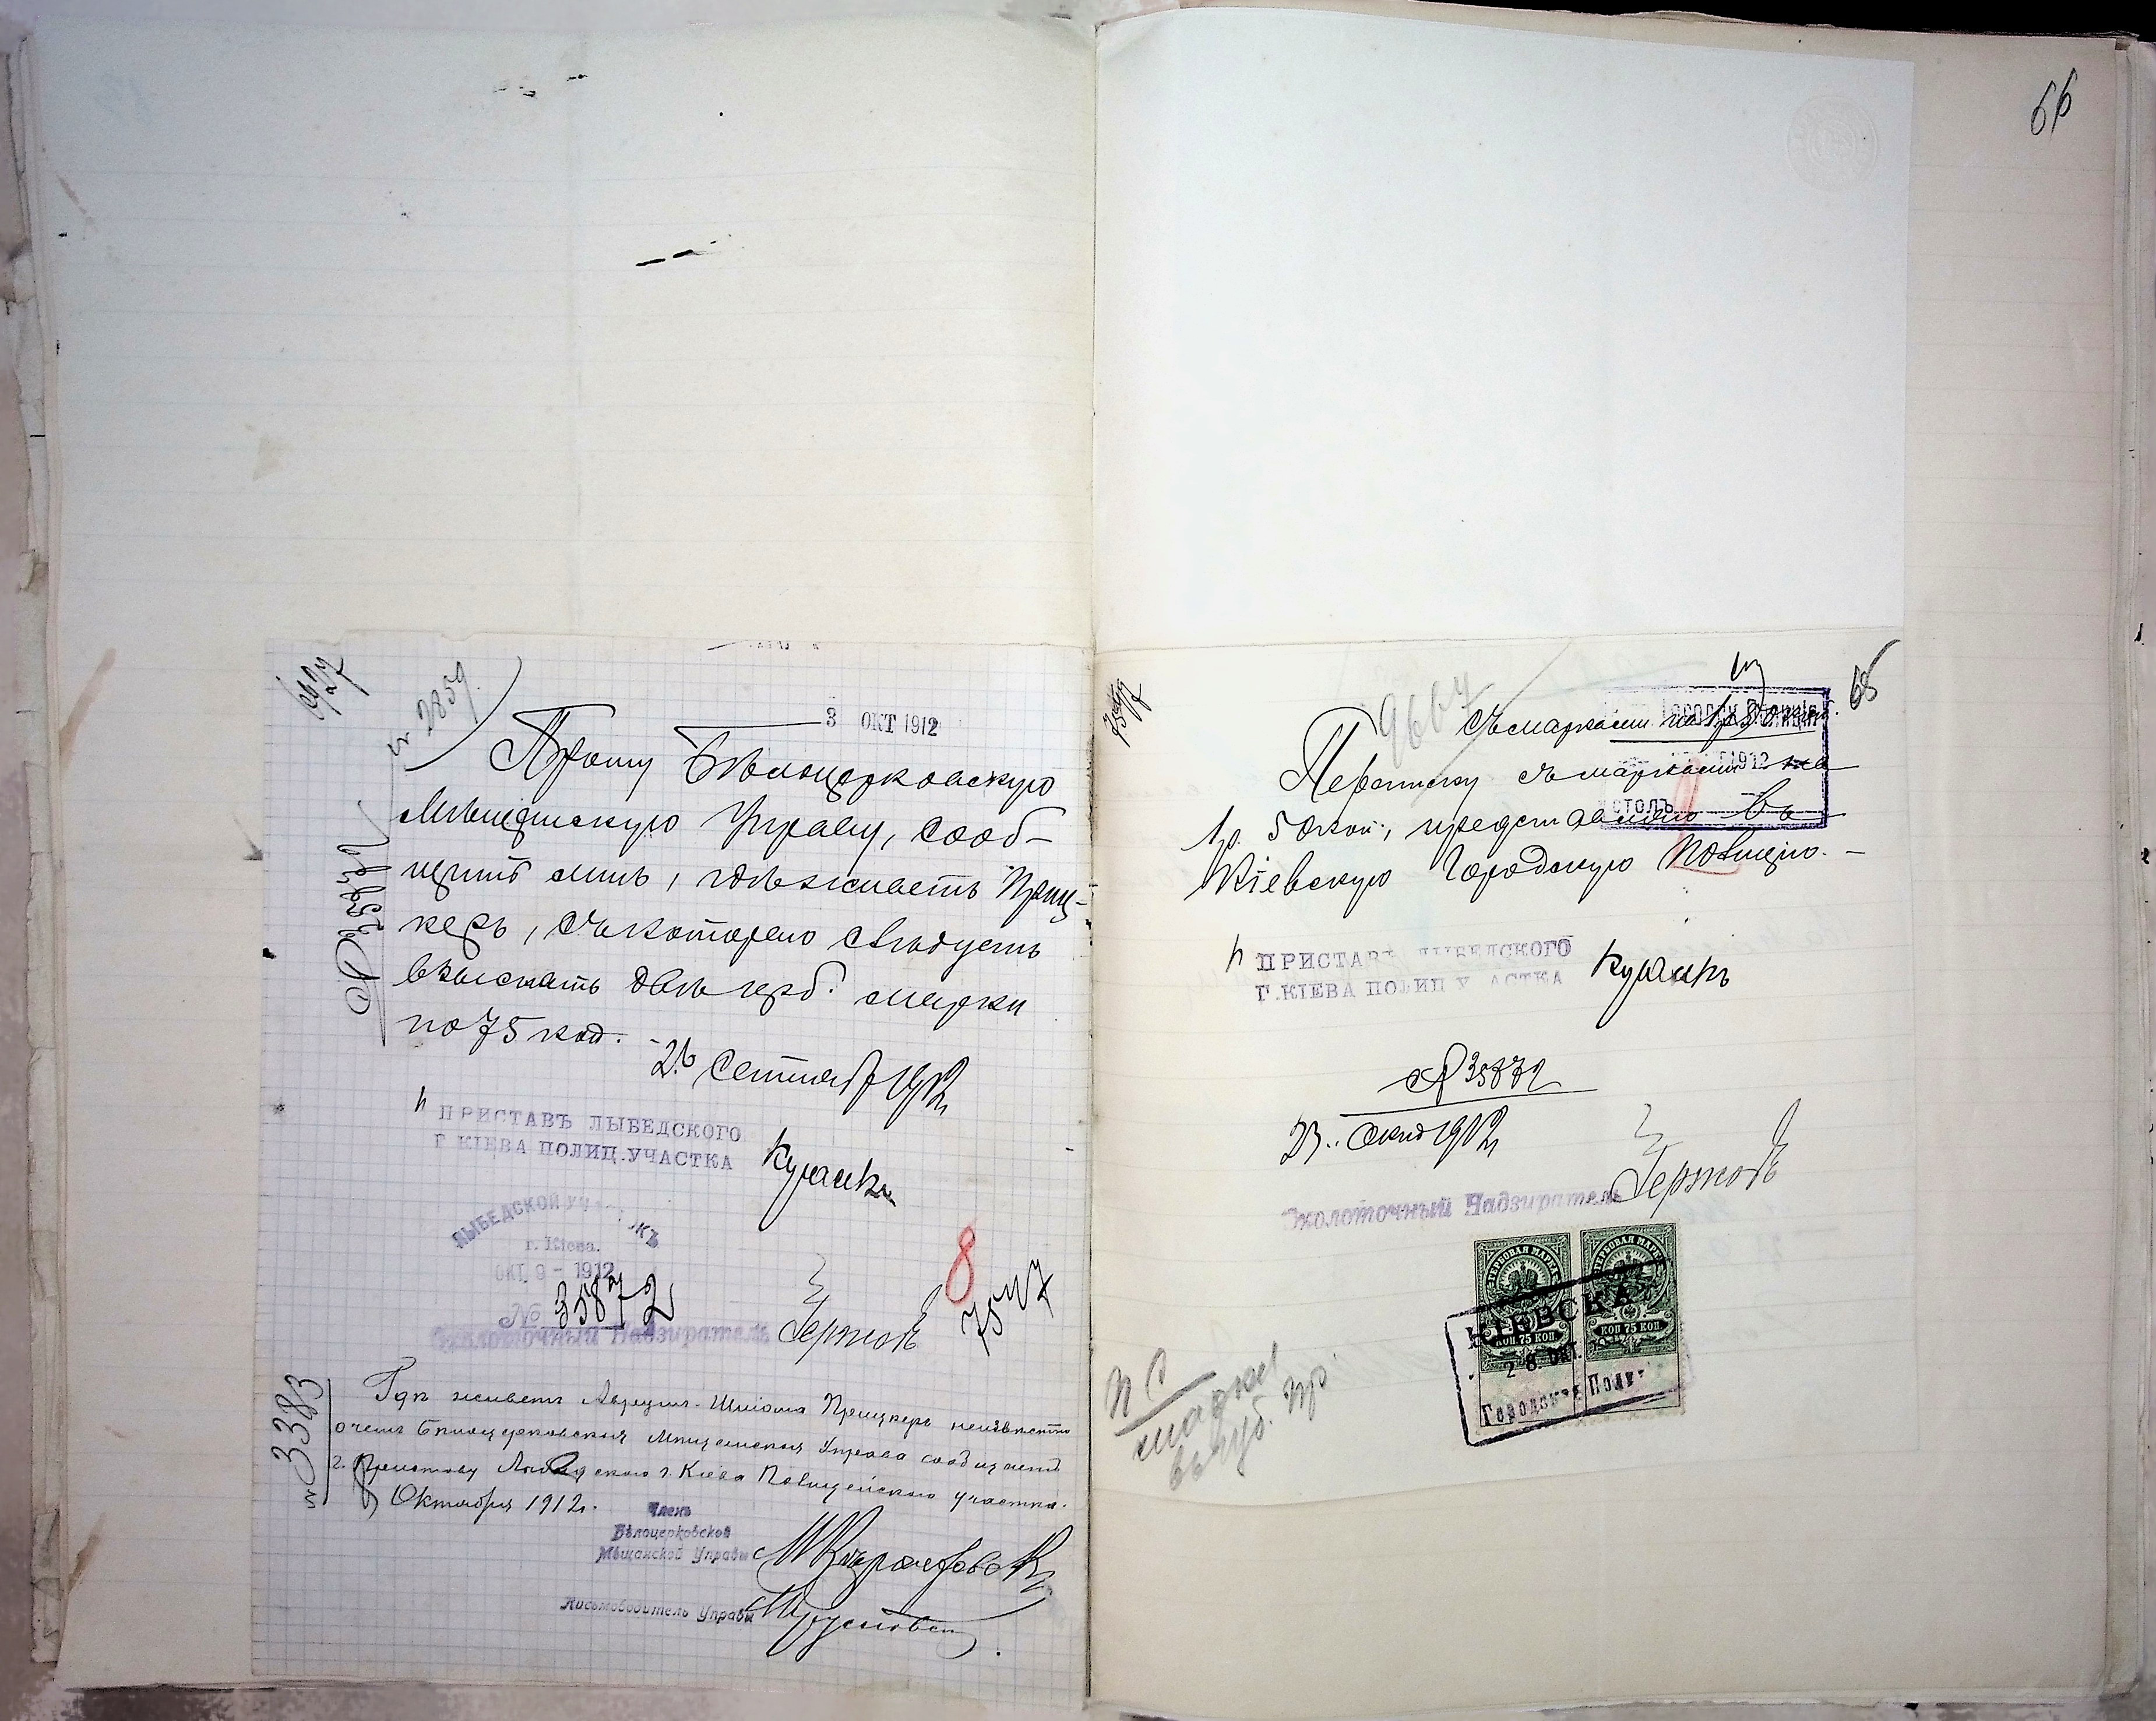 66
№ 2859
3 ОКТ 1912
Прошу Бѣлоцерковскую
Мѣщанскую Управу, сооб-
щить мнѣ, гдѣ живетъ Приц-
керъ, съ котораго слѣдуетъ
взыскать двѣ герб. марки
по 75 коп.
26 Сентября 1912
ПРИСТАВЪ ЛЫБЕДСКОГО
Г. КІЕВА ПОЛИЦ. УЧАСТКА
ЛЫБЕДСКОЙ УЧАСТОКЪ
г. Кіева.
ОКТ. 9 - 1912
№ 35872
8
Околоточный Надзиратель
№ 3383
Гдѣ живетъ Аврумъ-Шлiома Прицкеръ неизвѣстно
о чемъ Бѣлоцерковская Мѣщанская Управа сообщаетъ
г. Приставу Лыбедского г. Кіева Полицейскаго участка.
Октября 1912 г.
Членъ
Бѣлоцерковской
Мѣщанской Управы
Письмоводитель Управы
68
9667
Съ марками на 1 р. 50 коп.
1912
СТОЛЪ
Переписку съ марками на
1 р. 50 коп., представляю въ
Кіевскую Городскую Полицію. -
ПРИСТАВЪ ЛЫБЕДСКОГО
Г. КІЕВА ПОЛИЦ УЧАСТКА
35872
23 Окт 1912
Околоточный Надзиратель
ГЕРБОВАЯ МАРКА ГЕРБОВАЯ МАРКА
КОП. 75 КОП. КОП. 75 КОП.
КІЕВСКАЯ
28. ОКТ.
Городская Поли
марки